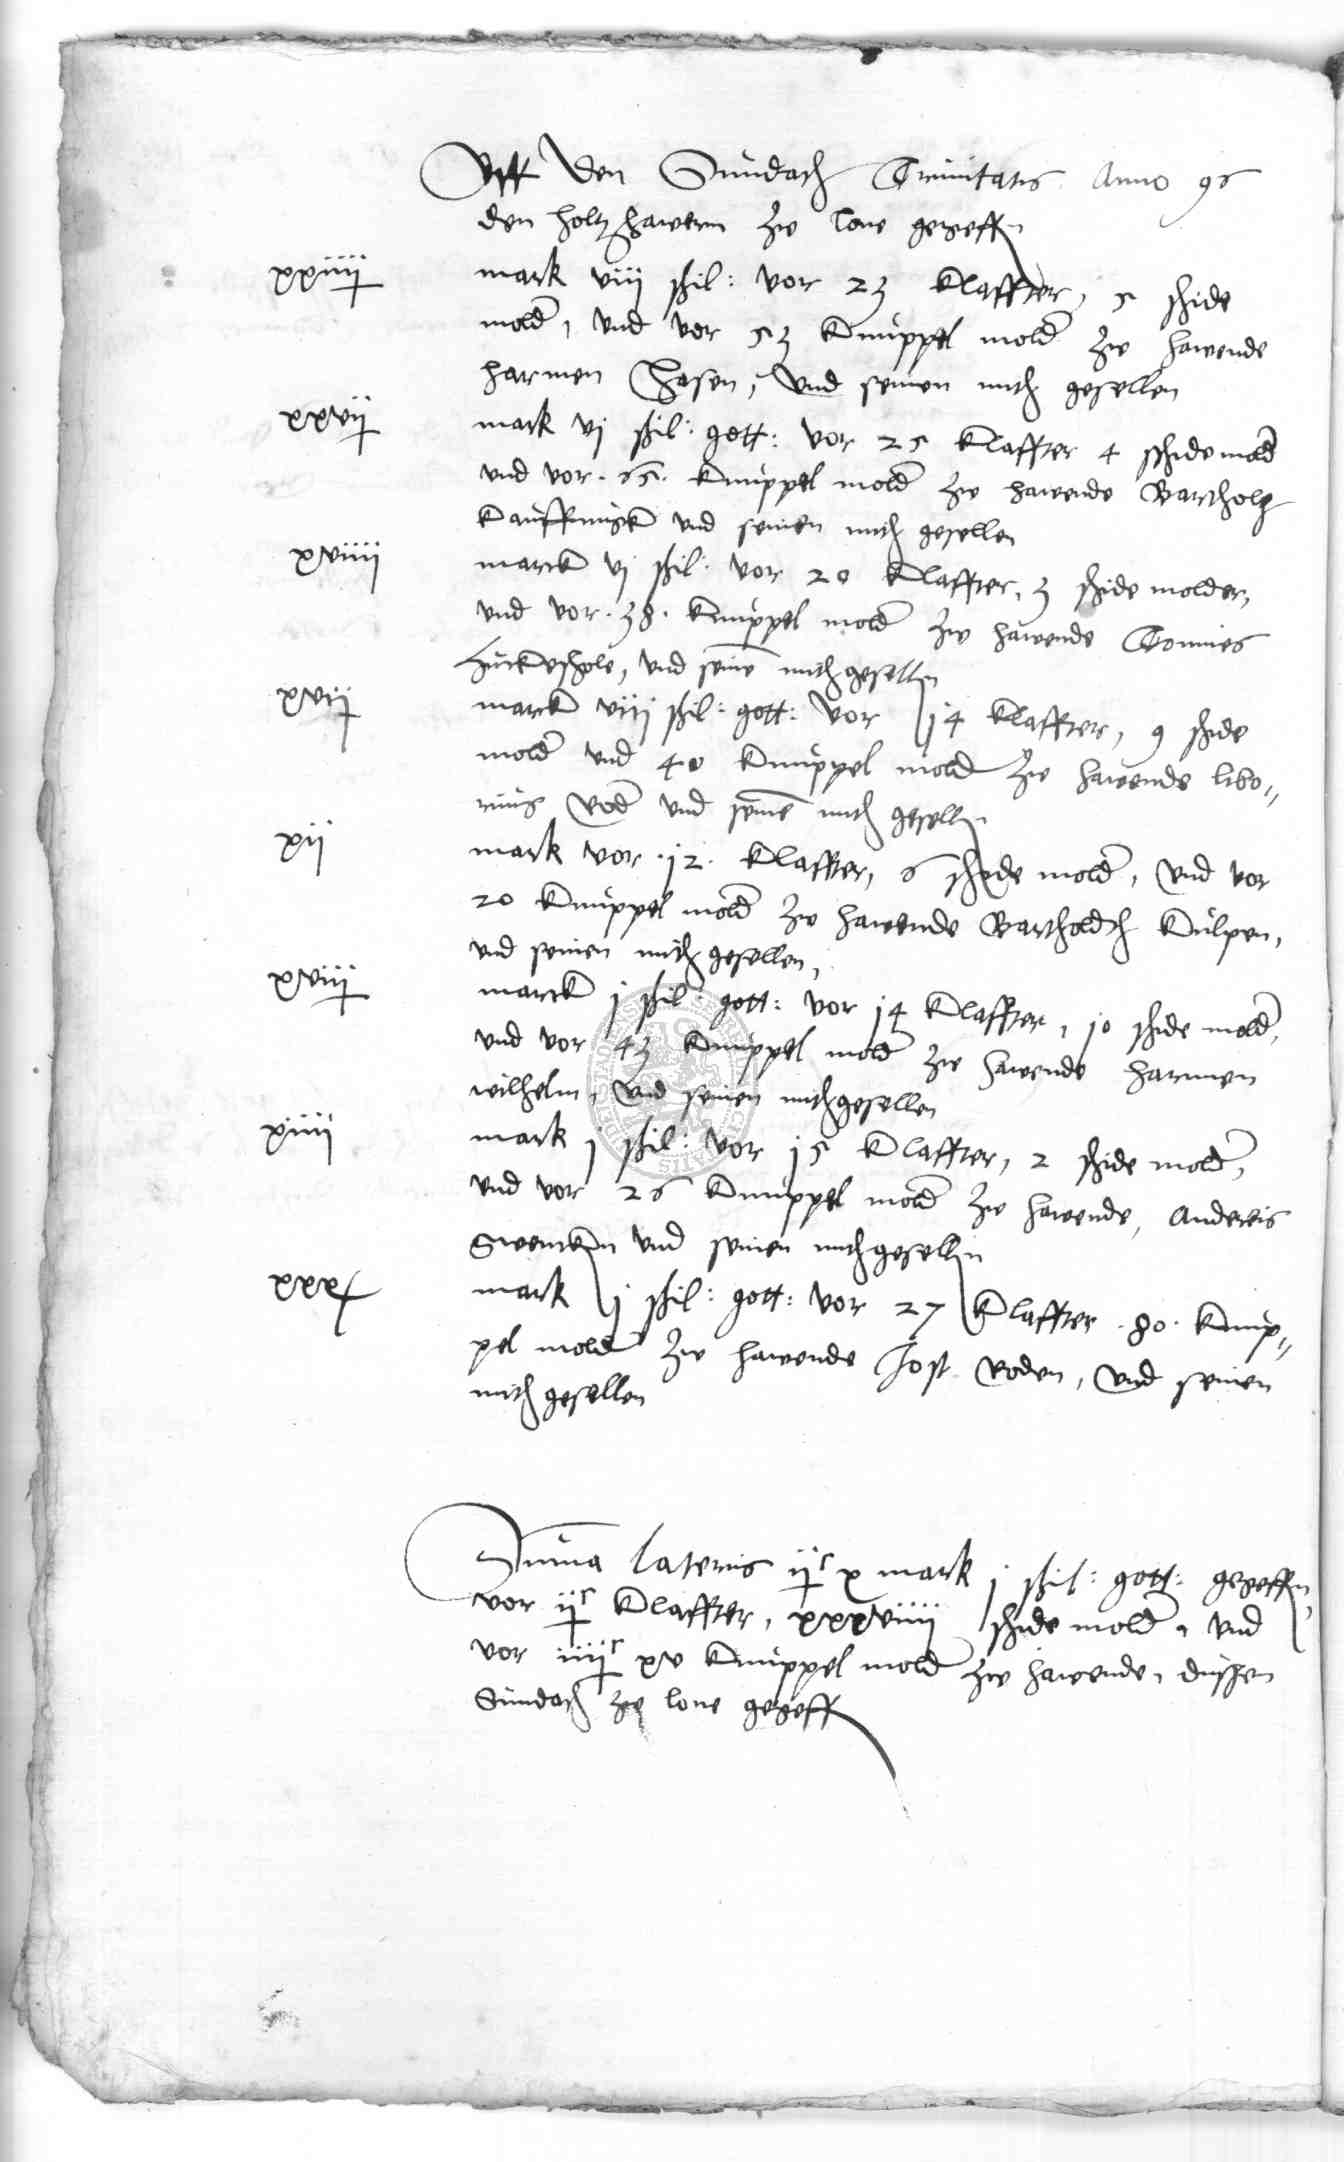 Vff den Sundach Trinitatis Anno 96
den holtzhawern zw lone gegeffn
xxiiii mark viii schil: vor 23 Klaffter, 5 schide
mold, vnd vor 53 Knuppel mold zw hawende
harmen Hasen, vnd seinen mith gesellen
xxvii mark vj schil: gott: vor 25 Klaffter 4 schide mold
vnd vor . 65 . Knuppel mold zw hawende Bartholg
Kauffmisck vnd seinen mith gesellen
xviiii marck vj schil: vor 20 Klaffter, 3 schide molder,
vnd vor . 38 . Knuppel mold zw hawende Tonnies
vnd seine mith gesellin
xvii marck viii schil: gott: vor 14 Klaffter, 9 schide
mold vnd 40 Knuppel mold zw hawende libo-
rius Rod vnd seine mith gesellin
xii mark vor . 12 . Klaffter, 6 schide mold, vnd vor
20 Knuppel mold zw hawende Bartholdth Kulpen,
vnd seinen mith gesellen,
xviii marck j schil: gott: vor 14 Klaffter, 10 schide mold,
vnd vor 43 Knuppel mold zw hawende harmen
wilhelm, vnd seinen mithgesellen
xiiii mark j schil: vor 15 Klaffter, 2 schide mold,
vnd vor 26 Knuppel mold zw hawende, Andreis
Swencken vnd seinen mithgesellin
xxx mark j schil: gott: vor 27 Klaffter . 80 . Knup-
pel mold zw hawende Jost Roden, vnd seinen
mith gesellen
Suma lateris iic x mark j schil: gott: gegeffn,
vor iic Klaffter, xxxviiii schide mold, vnd
vor iiiic xv Knuppel mold zw hawende, dussen
Sundach zw lone gegeff